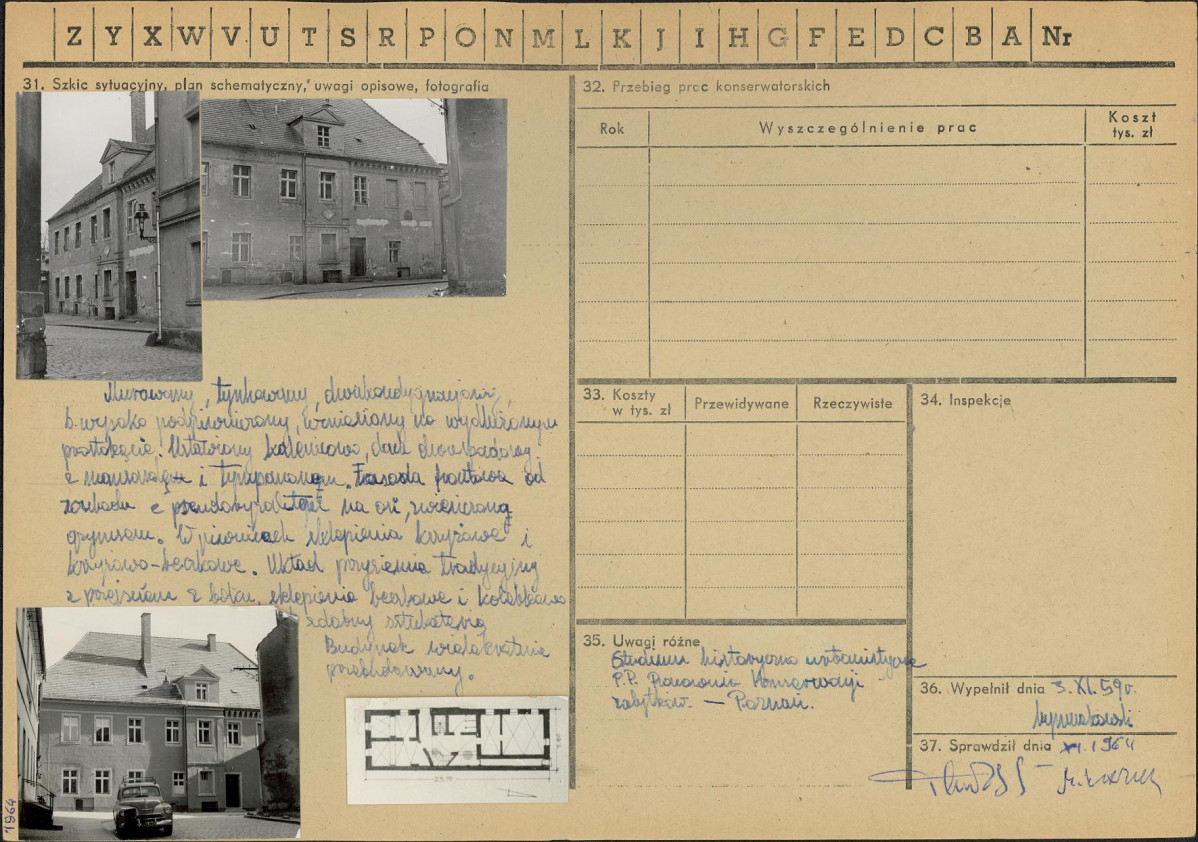 Z Y X W V U T S R P O N M L K J I H G F E D C B A Nr
31. Szkic sytuacyjny, plan schematyczny, uwagi opisowe, fotografia
Murowany, tynkowany, dwukondygnacjowy,
b. wysoko podpiwniczony, wzniesiony na wydłużonym
prostokącie. Ustawiony kalenicowo, dach dwuspadowy
z mansardą i tympanonem. Fasada frontowa od
zachodu z pseudoryzalitem na osi, zwieńczona
gzymsem. W piwnicach sklepienia krzyżowe i
krzyżowo-beczkowe. Układ przyziemia tradycyjny
z przejściem z boku, sklepienia beczkowe i kolebkowe
zdobny sztukaterią
Budynek wielokrotnie
przebudowany.
1964
32. Przebieg prac konserwatorskich
Rok
Wyszczególnienie prac
Koszt
tys. zł
33. Koszty
w tys. zł
Przewidywane
Rzeczywiste
34. Inspekcje
35. Uwagi różne
Studium historyczno urbanistyczne
P.P. Pracownia Konserwacji
zabytków. — Poznań.
36. Wypełnił dnia 3.XI.59r.
37. Sprawdził dnia XI.1964